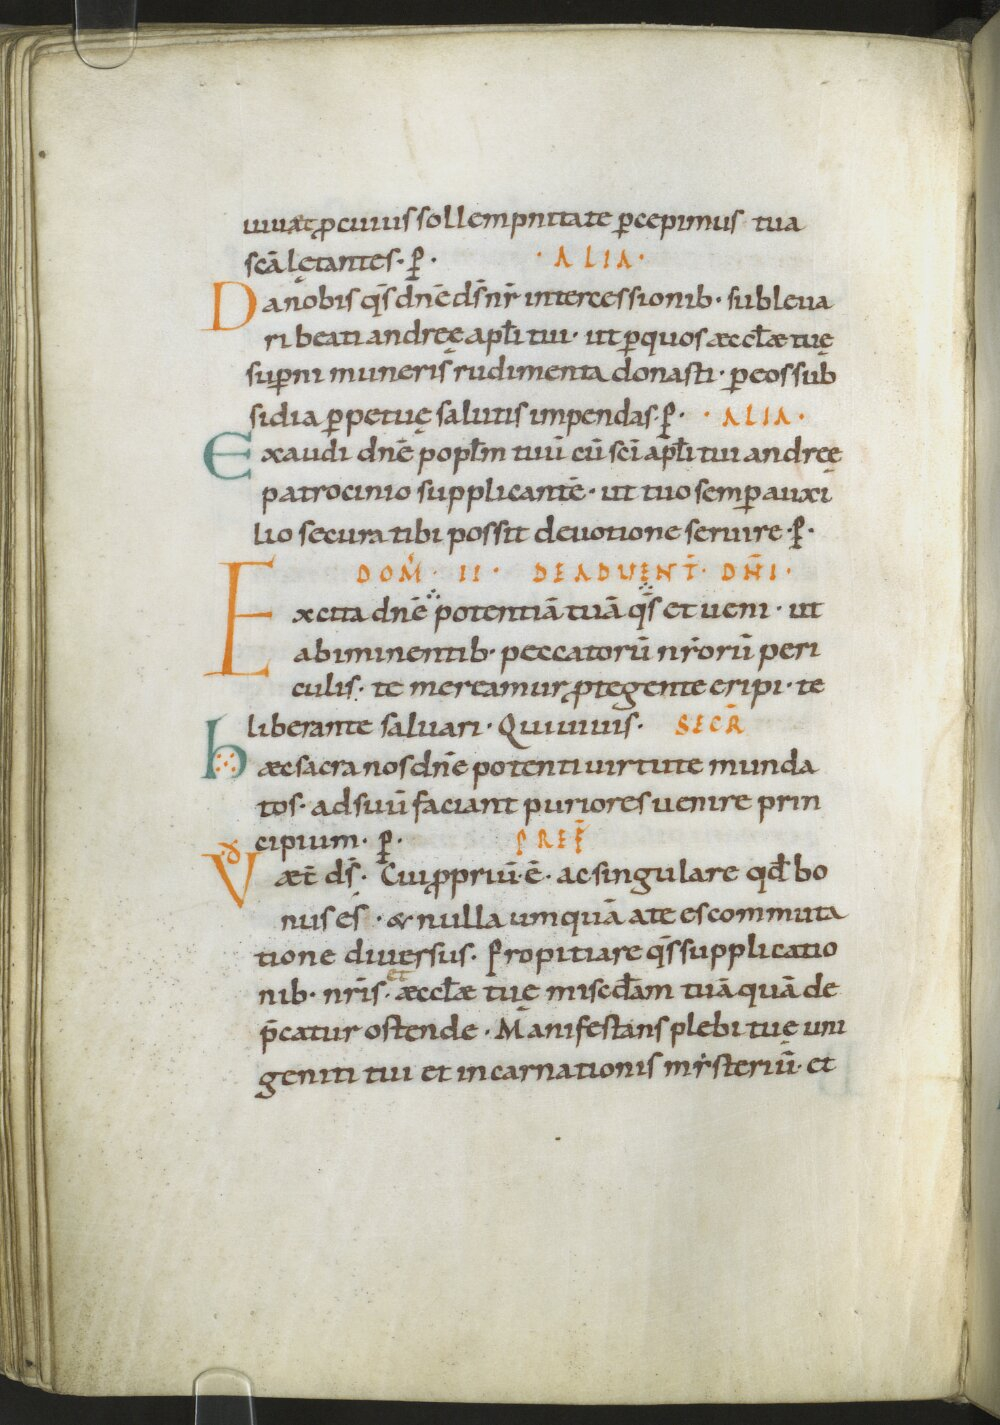 uiuat ꝓ cuius sollempnitate ꝑcepimus tua
sc̄a lętantes· ꝑ· · ALIA ·
Da nobis q̄s dn̄e ds̄ nr̄ intercessionib· subleua
ri beati andreę apl̄i tui· ut ꝑ quos æccl̄æ tuę
suꝑni muneris rudimenta donasti· ꝑ eos sub
sidia ꝑpetuę salutis impendas· ꝑ· · ALIA ·
Exaudi dn̄e popl̄m tuū cū sc̄i apl̄i tui andreę
patrocinio supplicantē· ut tuo semꝑ auxi
lio secura tibi possit deuotione seruire· ꝑ·
DOM̄ · II · DE ADUĘNT̄· DN̄I ·
Excita dn̄e potentiā tuā q̄s et ueni · ut
ab iminentib· peccatorū nr̄orū peri
culis· te mereamur ꝓtegente eripi· te
liberante saluari · Qui uiuis· SECR̄
hæc sacra nos dn̄e potenti uirtute munda
tos· ad suū faciant puriores uenire prin
cipium· ꝑ· PREF̄
VD æt̄ ds̄· Cui ꝓpriū· ē· ac singulare qd̄ bo
nus es · & nulla umquā a te es commuta
tione diuersus· Propitiare q̄s supplicatio
nib· nr̄is· et æccl̄æ tuę misc̄dam tuā quā de
p̄catur ostende · Manifestans plebi tuę uni
geniti tui et incarnationis mẏsteriū· et